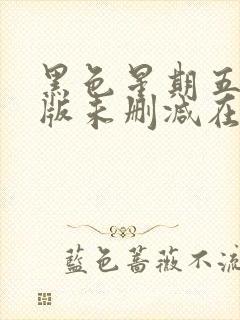 黑色星期五
版未删减在
藍色薔薇不流